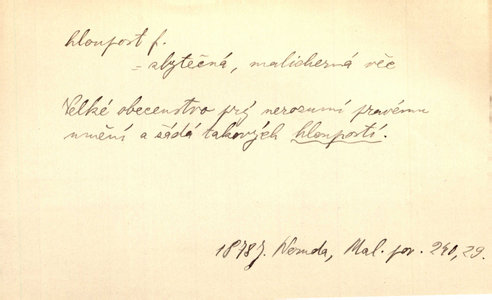 hloupost f.
= zbytečná, malicherná věc
Velké obecenstvo prý nerozumí pravému
umění a žádá takových hloupostí.
1878 J. Neruda, Mal. pov. 240, 29.